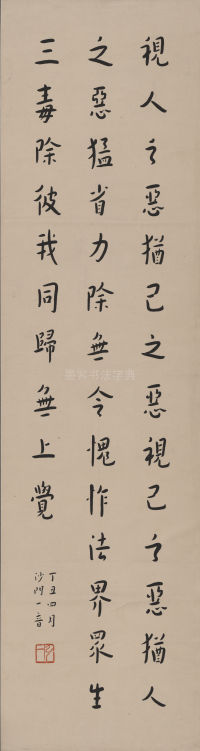 視人之惡猶己之惡視己之惡猶人
之惡猛省力除無令愧怍法界眾生
三毒除彼我同歸無上覺
丁丑四月
沙門一音
墨客书法字典